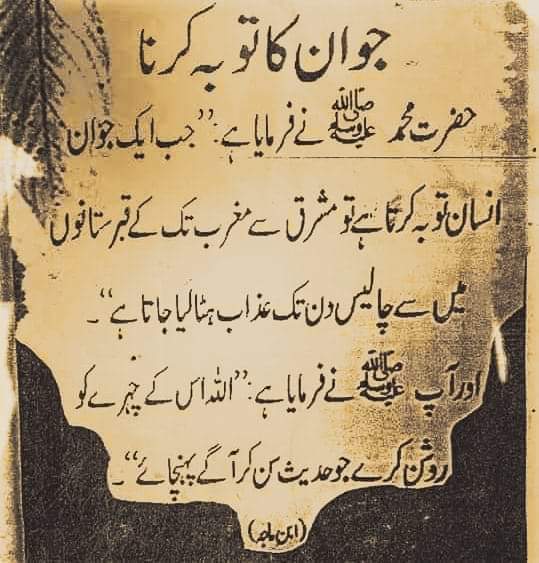 جوان کا توبہ کرنا
حضرت محمد ﷺ نے فرمایا ہے: "جب ایک جوان
انسان توبہ کرتا ہے تو مشرق سے مغرب تک کے قبرستانوں
میں سے چالیس دن تک عذاب ہٹا لیا جاتا ہے"۔
اور آپ ﷺ نے فرمایا ہے: "اللہ اس کے چہرے کو
روشن کرے جو حدیث سن کر آگے پہنچائے"۔
(ابن ماجہ)